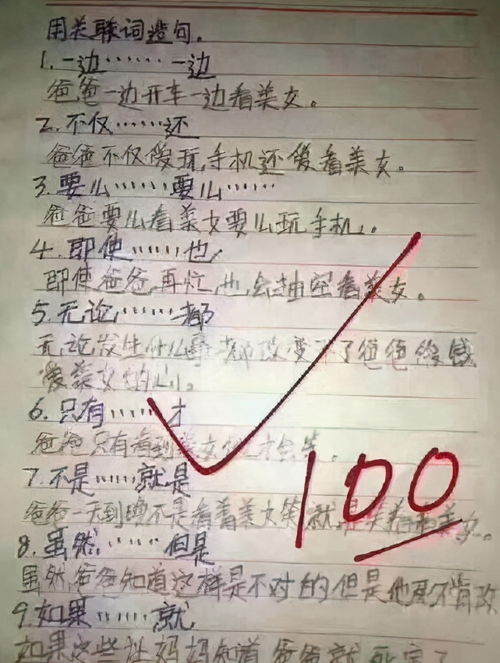 用关联词造句。
1.一边……一边
爸爸一边开车一边看美女。
2.不仅……还
爸爸不仅爱玩手机还爱看美女。
3.要么……要么……
爸爸要么看美女要么玩手机。
4.即使……也
即使爸爸再忙,也会抽空看美女。
5.无论……都
无论发生什么事都改变不了爸爸
爱美女的心。
6.只有……才
爸爸只有看到美女才会笑。
7.不是……就是
爸爸一天到晚不是看着美女笑就是笑着看美女。
8.虽然……但是
虽然爸爸知道这样是不对的但是他死不肯改
9.如果……就
如果这些让妈妈知道爸爸就死定了
100